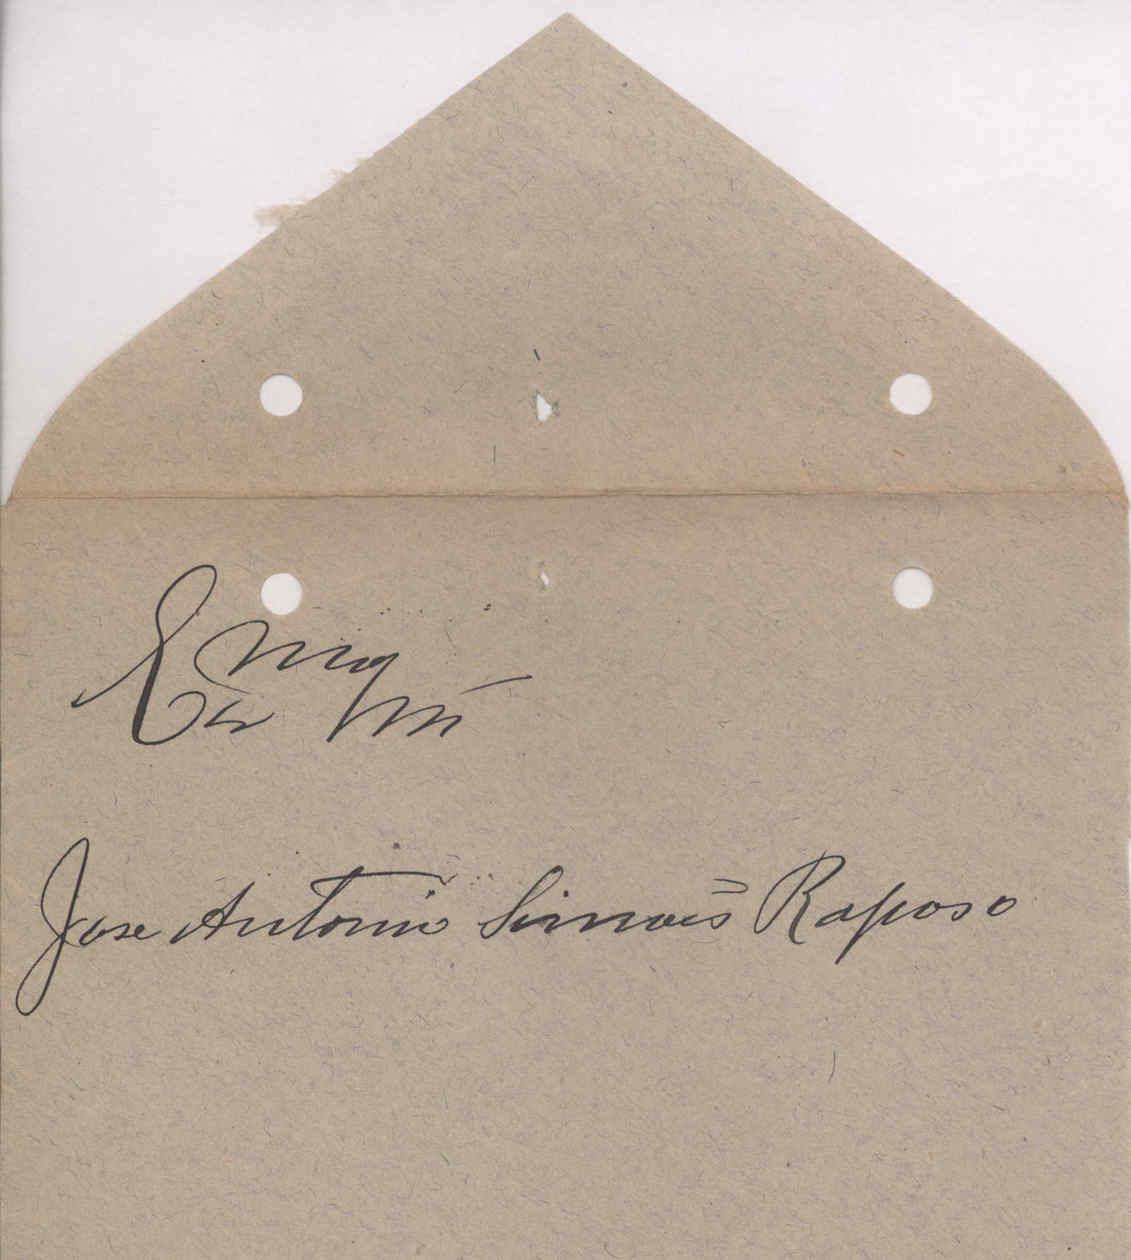 Exmº Snr
José Antonio Simões Raposo